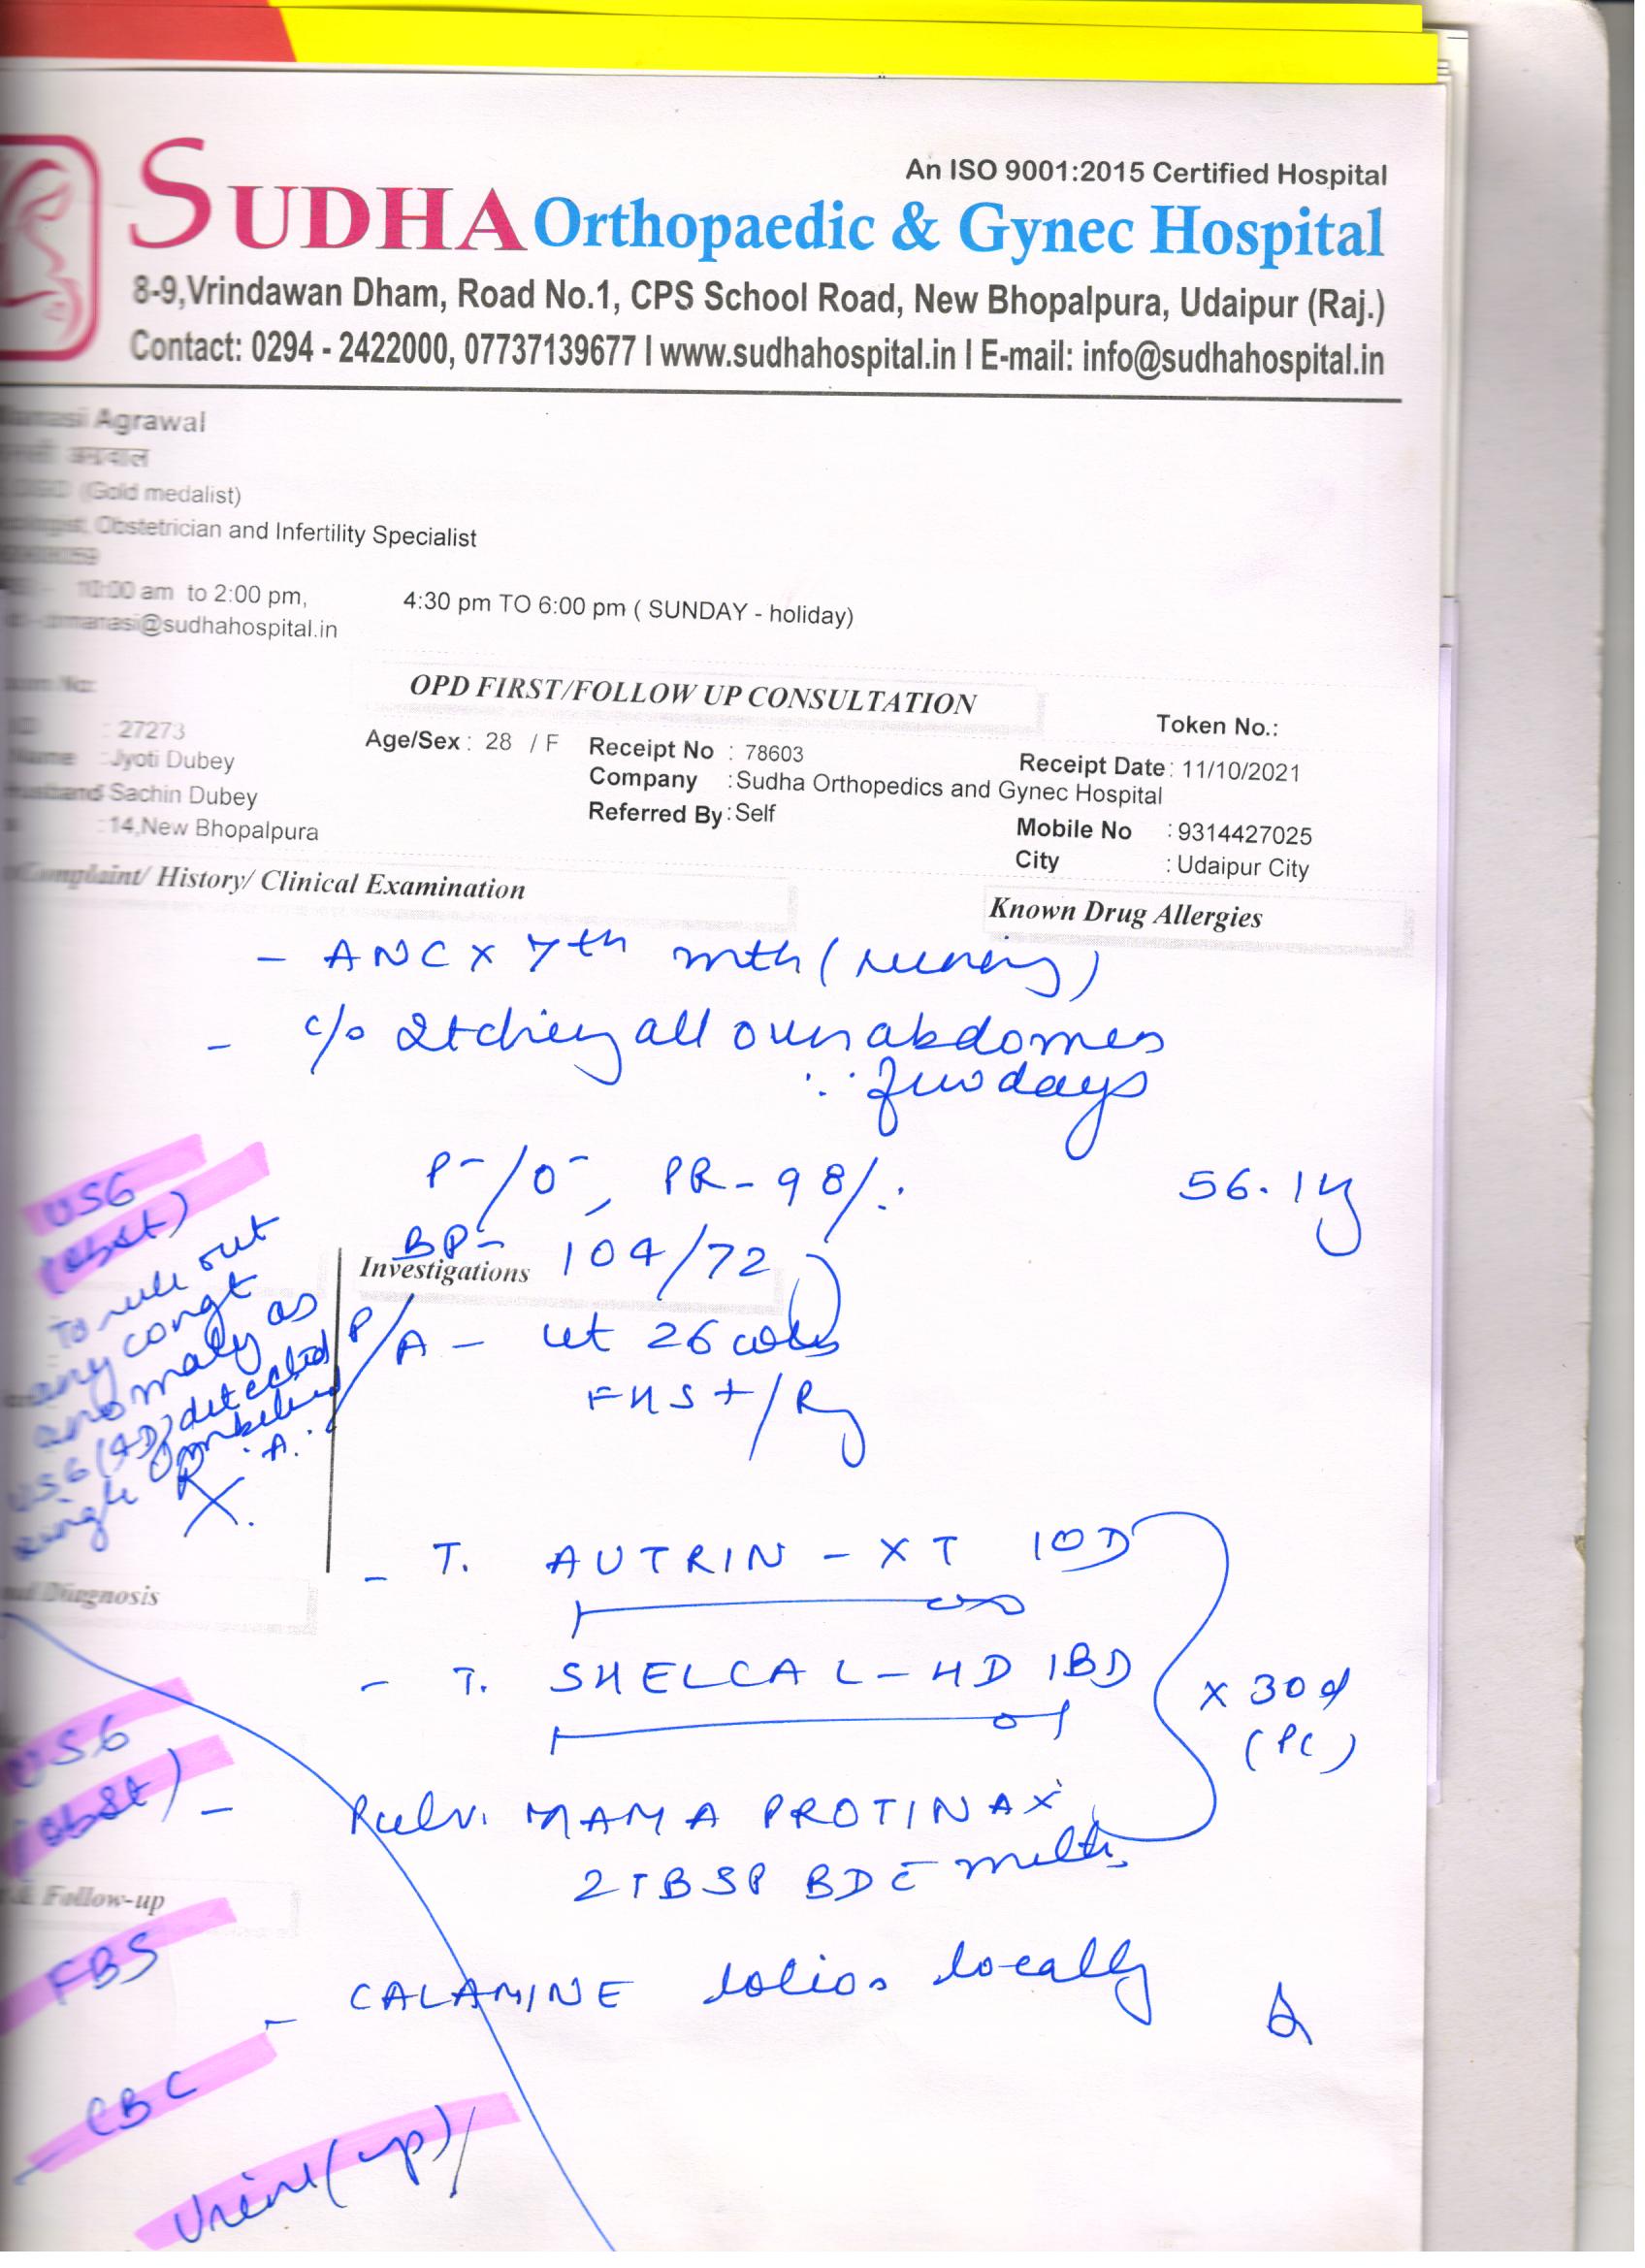 An ISO 9001:2015 Certified Hospital
SUDHA Orthopaedic & Gynec Hospital
8-9,Vrindawan Dham, Road No.1, CPS School Road, New Bhopalpura, Udaipur (Raj.)
Contact: 0294 - 2422000, 07737139677 I www.sudhahospital.in I E-mail: info@sudhahospital.in
Agrawal
अग्रवाल
(Gold medalist)
Obstetrician and Infertility Specialist
10:00 am to 2:00 pm, 4:30 pm TO 6:00 pm ( SUNDAY - holiday)
manasi@sudhahospital.in
OPD FIRST/FOLLOW UP CONSULTATION
Token No.:
: 27273 Age/Sex : 28 / F Receipt No : 78603 Receipt Date : 11/10/2021
Name : Jyoti Dubey Company : Sudha Orthopedics and Gynec Hospital
Husband Sachin Dubey Referred By : Self Mobile No : 9314427025
: 14,New Bhopalpura City : Udaipur City
Complaint/ History/ Clinical Examination Known Drug Allergies
- ANC x 7th mth (
- c/o Itching all over abdomen
∵ few days
P-/O-, PR-98/. 56.1kg
BP- 104/72
Investigations
P/A - ut 26 wks
FHS+/R
USG
(obst)
To rule out
any congt
anomaly as
USG (4D) detected
single umbilical
A.
- T. AUTRIN - XT 1OD
- T. SHELCAL-HD 1BD
x 30d
(PC)
- Pulv. MAMA PROTINAX
2TBSP BD c̄ milk
- CALAMINE lotion locally
Diagnosis
USG
(obst)
Follow-up
FBS
CBC
Urine (